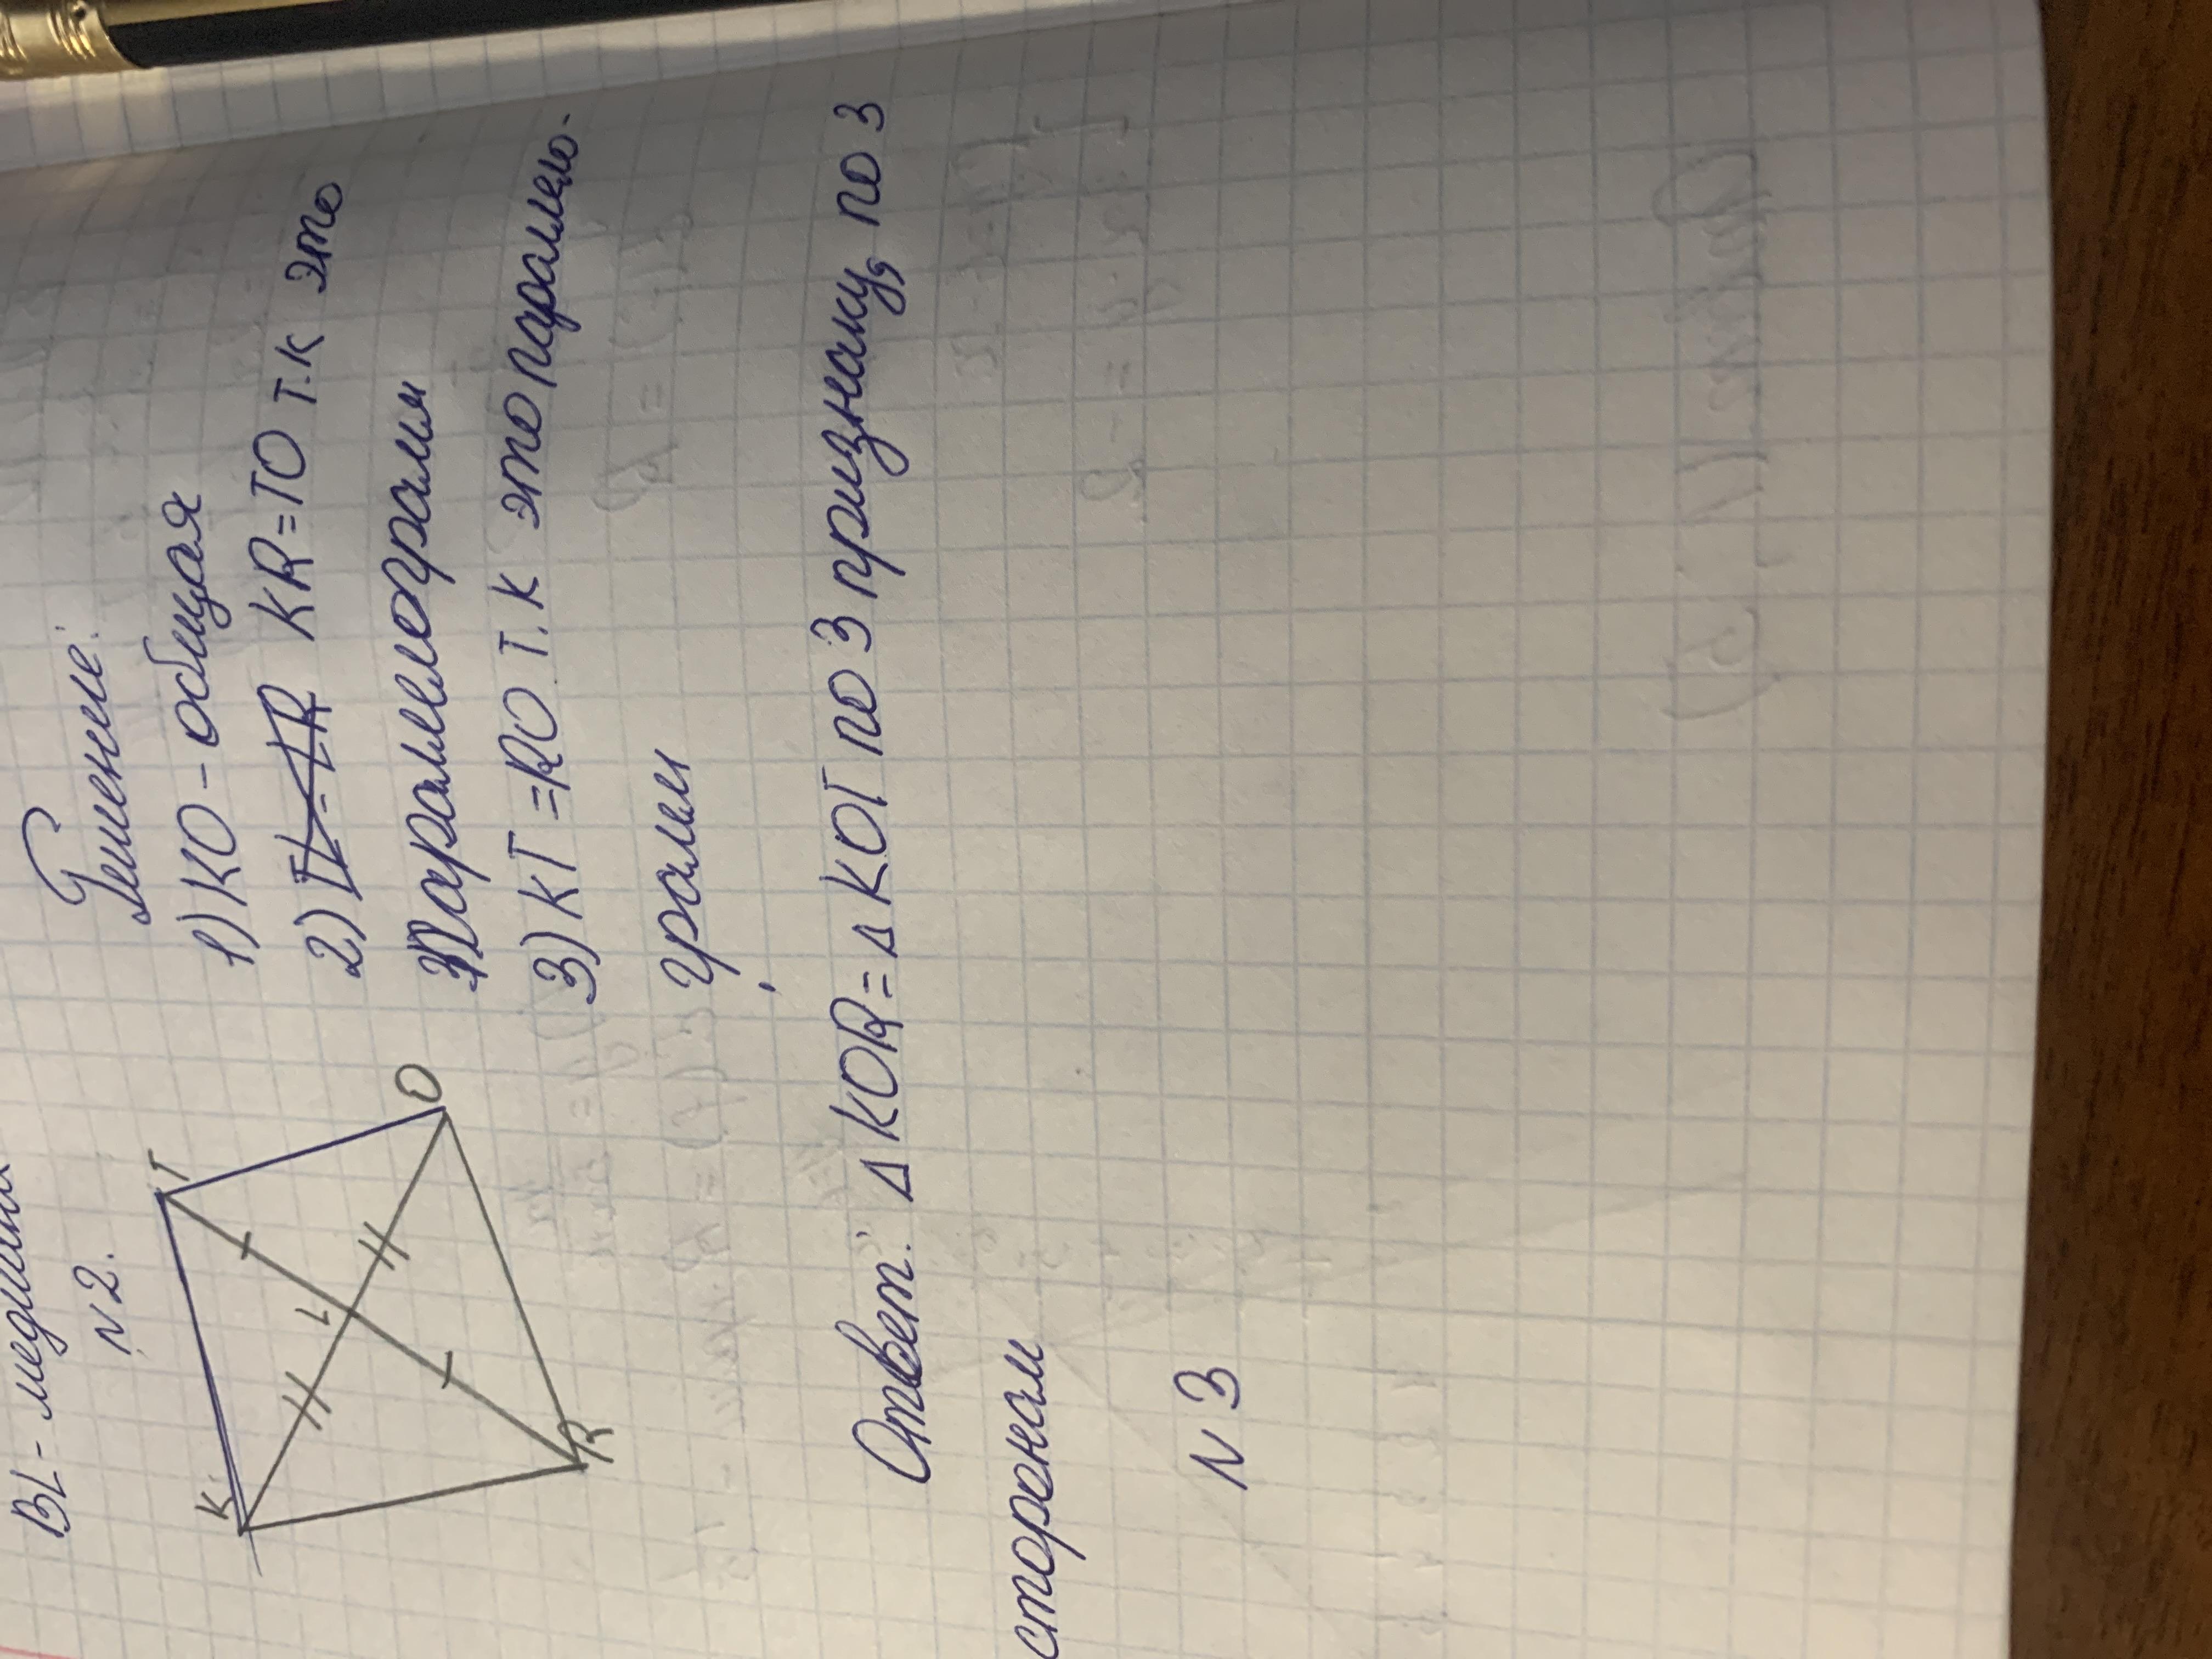 BL - медиана
N2.
K
T
L
O
R
Решение:
1) KO - общая
2) TL=LR KR=TO т.к это
параллелограмм
3) KT=RO т.к это параллело-
грамм
Ответ: Δ KOR = Δ KOT по 3 признаку, по 3
сторонам
N 3